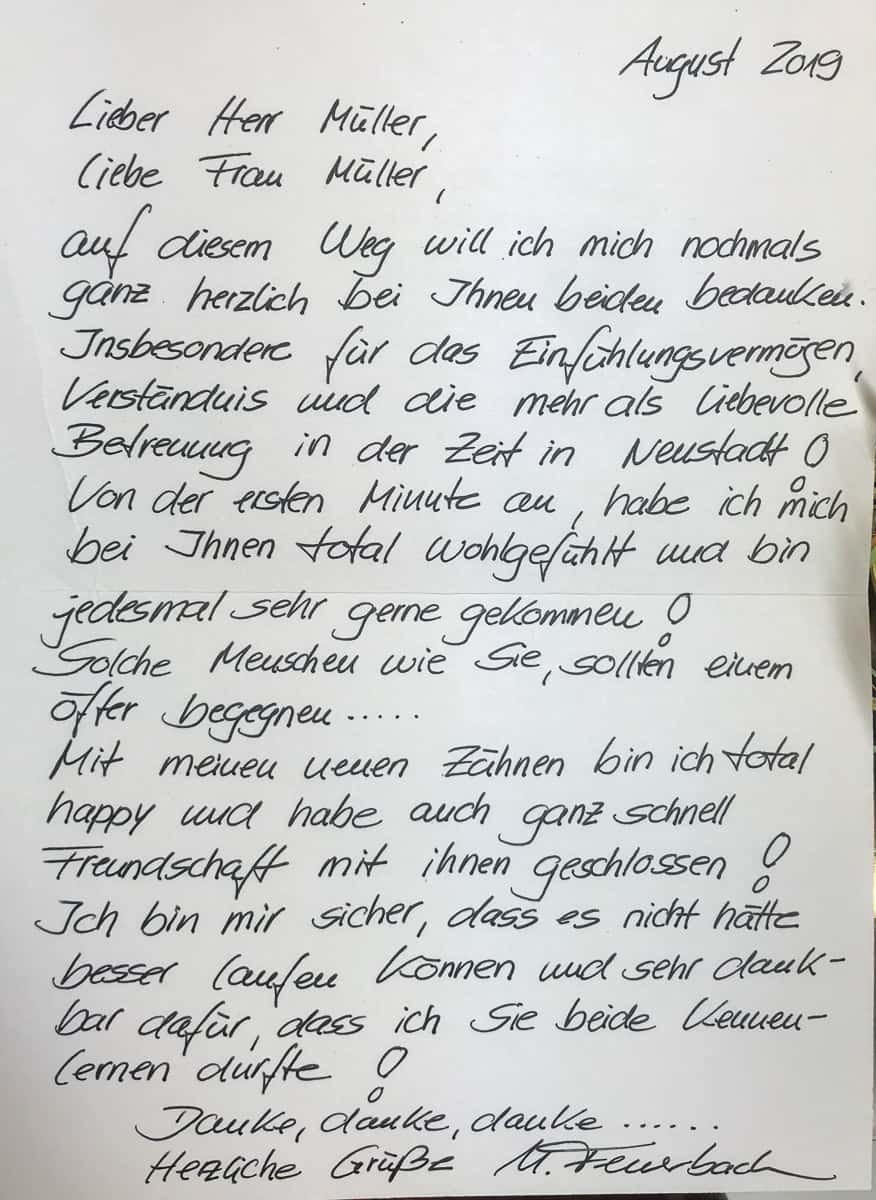 August 2019
Lieber Herr Müller,
liebe Frau Müller,
auf diesem Weg will ich mich nochmals
ganz herzlich bei Ihnen beiden bedanken.
Insbesondere für das Einfühlungsvermögen,
Verständnis und die mehr als liebevolle
Betreuung in der Zeit in Neustadt!
Von der ersten Minute an, habe ich mich
bei Ihnen total wohlgefühlt und bin
jedesmal sehr gerne gekommen!
Solche Menschen wie Sie, sollten einem
öfter begegnen.....
Mit meinen neuen Zähnen bin ich total
happy und habe auch ganz schnell
Freundschaft mit ihnen geschlossen!
Ich bin mir sicher, dass es nicht hätte
besser laufen können und sehr dank-
bar dafür, dass ich Sie beide kennen-
lernen durfte!
Danke, danke, danke ......
Herzliche Grüße M. Feuerbach